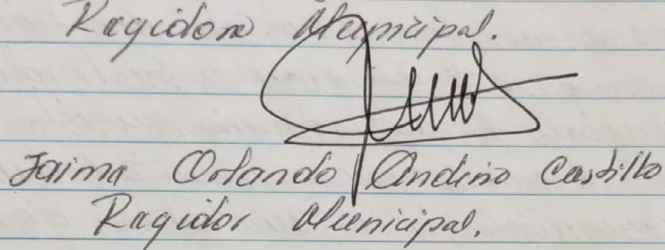 Regidora Municipal.
Jaime Orlando Andino Castillo
Regidor Municipal.